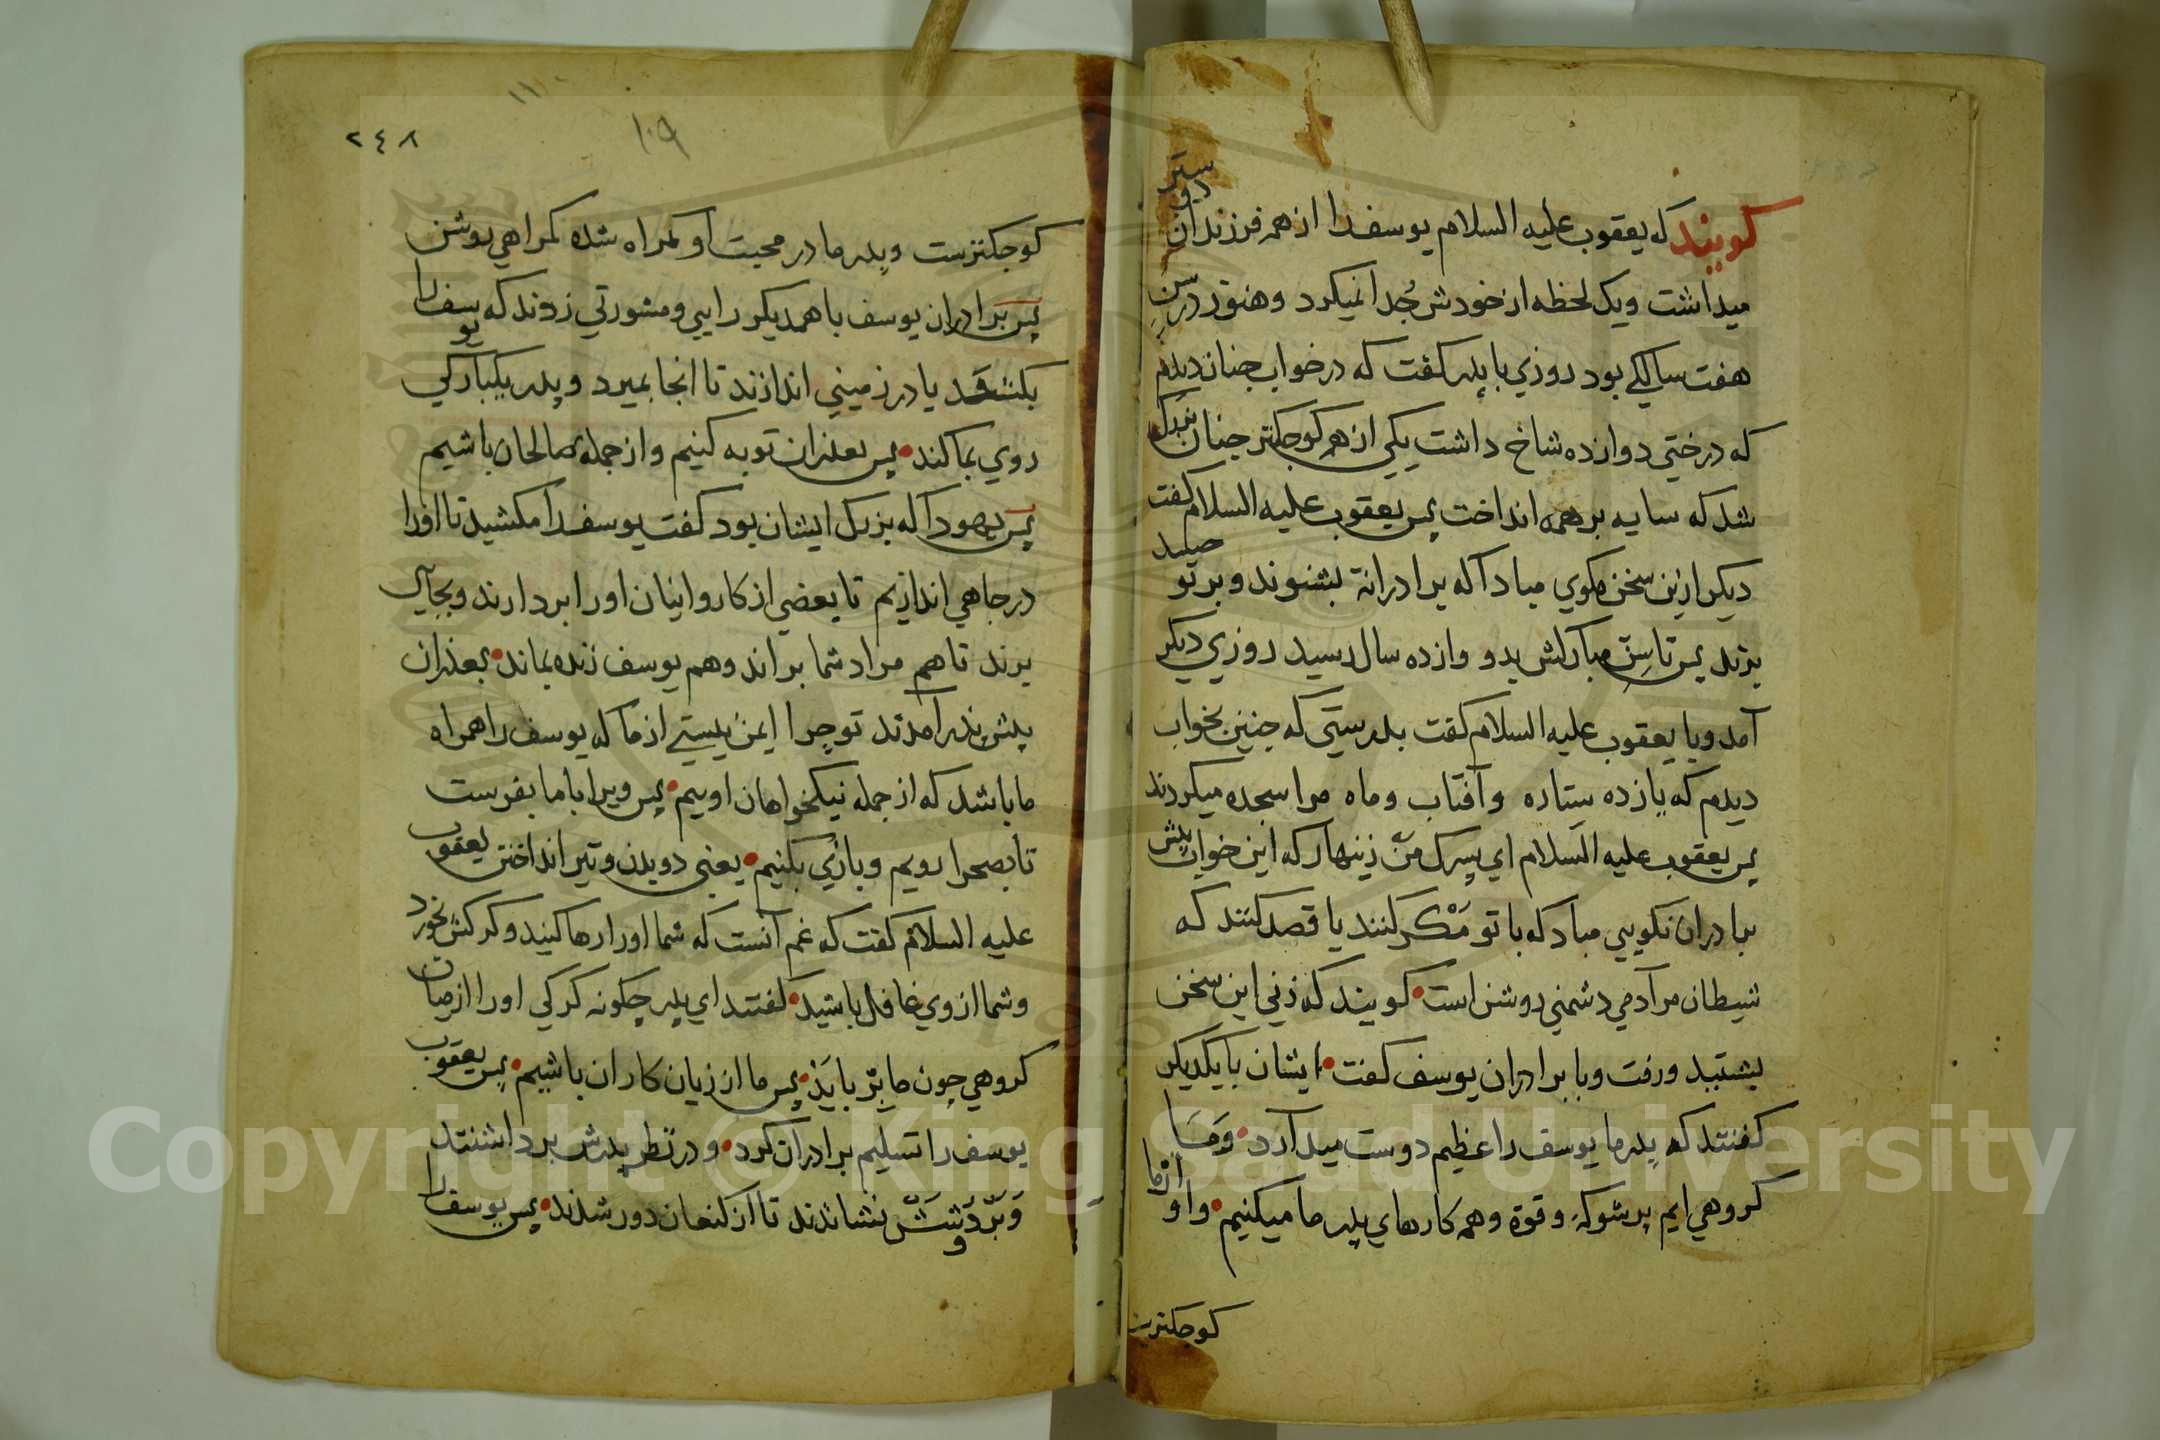 کویند که یعقوب علیه السلام یوسف را از همه فرزندان دوستر
میداشت ویک لحظه از خودش جُدا نمیکرد وهنوز در سنِ
هفت سالکی بود روزي با پدر کفت که در خواب جنان دیدم
که درختي دوازده شاخ داشت یکي از همه کوجکتر جنان بزرک
شد که سایه بر همه انداخت پس یعقوب علیه السلام کفت
دیکر ازین سخن مکوي مبادا که برادرانت بشنوند وبر تو حسد
برند پس تا سِنّ مبارکش بدو وازده سال رسید روزي دیکر
آمد وبا یعقوب علیه السلام کفت بدرستی که جنین بخواب
دیدم که یازده ستاره وآفتاب وماه مرا سجده میکردند
پس یعقوب علیه السلام اي پسرک منّ زینهار که این خواب پیش
برادران نکویي مباد که با تو مَکْر کنند یا قصد کنند که
شیطان مر آدمي دشمني روشن است کویند که زني این سخن
بشنید ورفت وبا برادران یوسف کفت ایشان با یکدیکر
کفتند که پدر ما یوسف را عظیم دوست میدآرد وَمَا
کروهي ایم پر شوکة وقوة وهمه کارهاي پدر ما میکنیم واو از ما
کوجکترست
٢٤٨
١٠٩
کوجکترست وپدر ما در محبت او کمراه شده کمراهي روشن
پس برادران یوسف با همدیکر رایي ومشورتي زدند که یوسف را
بکشند یا در زمیني اندازند تا انجا بمیرد وپدر بیکبارکي
روي بما کند پس بعدزان توبه کنیم واز جمله صالحان باشیم
پس یهودا که بزرک ایشان بود کفت یوسف را مکشید تا اورا
در جاهي اندازیم تا بعضي از کاروانیان اورا بردارند وبجآي
برند تا هم مراد شما براند وهم یوسف زنده بماند بعدزان
پیش پدر آمدند تو چرا ایمن نیستی از ما که یوسف را همراه
ما باشد که از جمله نیکخواهان اوییم پس ویرا با ما بفرست
تا بصحرا رویم وبازي بکنیم یعني دویدن وتیر انداختن یعقوب
علیه السلام کفت که غم آنست که شما اورا رها کنید وکرکش بخورد
وشما ازوي غافل باشید کفتند اي پدر چکونه کرکي اورا از میان
کروهي چون ما برباید پس ما از زیان کاران باشیم پس یعقوب
یوسف را تسلیم برادران کرد ودر نظر پدرش برداشتند
وَبَر دوشش نشاندند تا از کنعان دور شدند پس یوسف را
Copyright © King Saud University